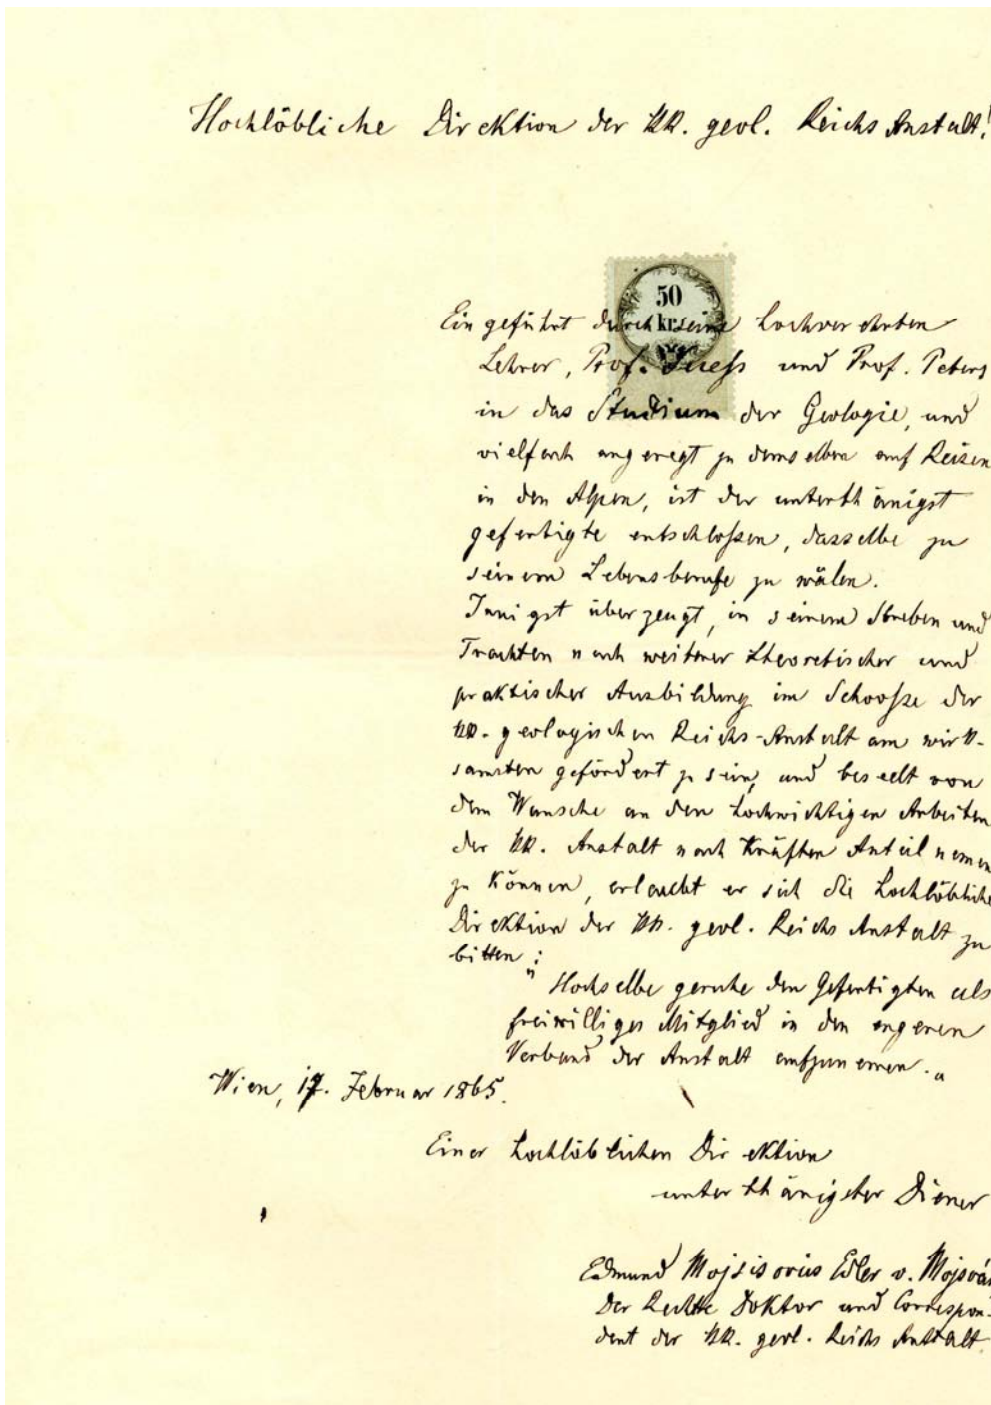 Hochlöbliche Direktion der kk. geol. Reichs Anstalt!
50
kr.
Eingeführt durch seine hochverehrten
Lehrer, Prof. Suess und Prof. Peters
in das Studium der Geologie, und
vielfach angeregt zu demselben auf Reisen
in den Alpen, ist der unterthänigst
gefertigte entschloßen, dasselbe zu
seinem Lebensberufe zu wälen.
Innigst überzeugt, in seinem Streben und
Trachten nach weiterer theoretischer und
praktischer Ausbildung im Schooße der
kk. geologischen Reichs-Anstalt am wirk-
samsten gefördert zu sein, und beseelt von
dem Wunsche an den hochwichtigen Arbeiten
der kk. Anstalt nach Kräften Anteil nemen
zu können, erlaubt er sich die hochlöbliche
Direktion der kk. geol. Reichs Anstalt zu
bitten:
"Hochselbe geruhe den Gefertigten als
freiwilliges Mitglied in den engeren
Verband der Anstalt aufzunemen."
Wien, 17. Februar 1865.
Einer hochlöblichen Direktion
unterthänigster Diener
Edmund Mojsisovics Edler v. Mojsvár
Der Rechte Doktor und Correspon-
dent der kk. geol. Reichs Anstalt.